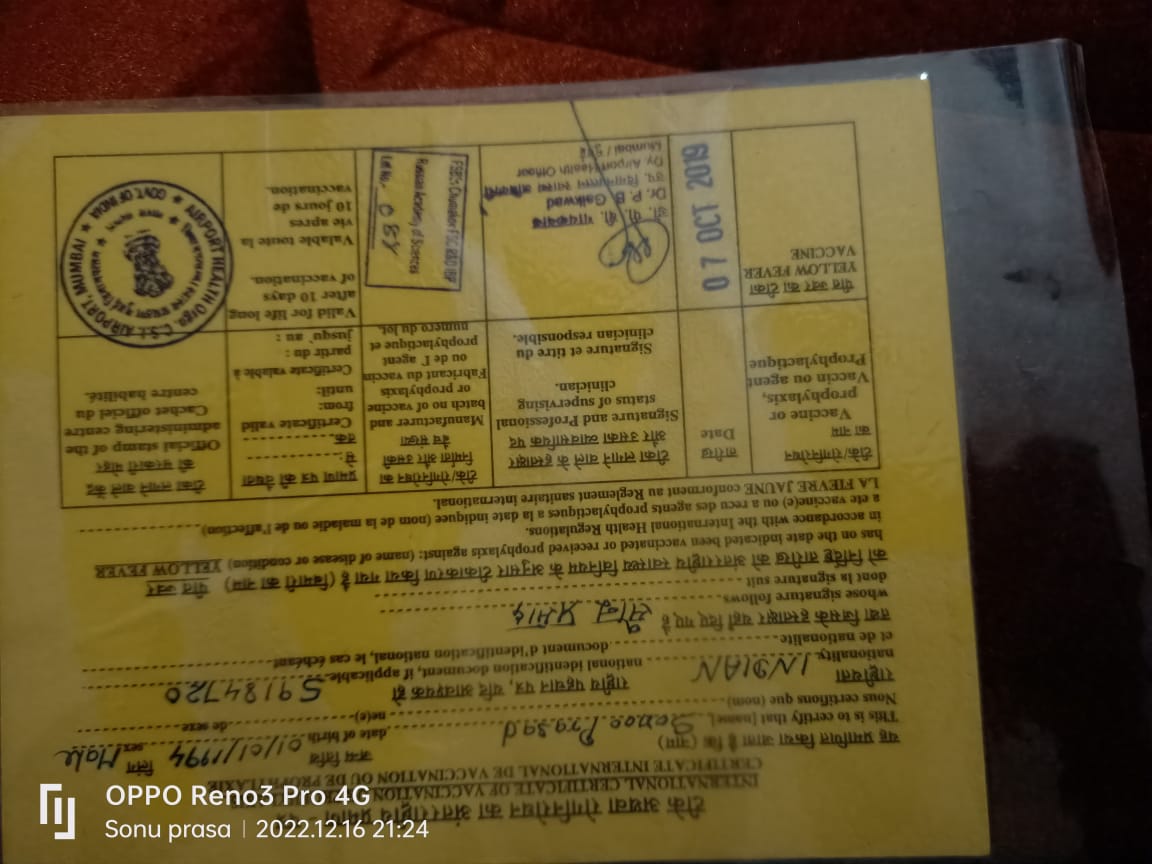 टीके अथवा रोगनिरोध का अंतरराष्ट्रीय प्रमाण - पत्र
INTERNATIONAL CERTIFICATE OF VACCINATION
CERTIFICATE INTERNATIONAL DE VACCINATION OU DE PROPHYLAXIE
यह प्रमाणित किया जाता है कि (नाम) जन्म तिथि लिंग
This is to certify that [name] Sonoo Prasad date of birth 01/01/1994 sex Male
Nous certifions que (nom) ne(e) de sexe
राष्ट्रीयता राष्ट्रीय पहचान पत्र, यदि आवश्यक हो
nationality INDIAN national identification document, if applicable S9184720
et de nationalite document d'identification national, le cas échéant
तथा जिसके हस्ताक्षर यहाँ दिए गए है
whose signature follows
dont la signature suit
को निर्दिष्ट तारीख को अंतरराष्ट्रीय स्वास्थ्य विनियम के अनुसार टीकाकरण किया गया है (बिमारी का नाम) पीत ज्वर
has on the date indicated been vaccinated or received prophylaxis against: (name of disease or condition) YELLOW FEVER
in accordance with the International Health Regulations.
a ete vaccine(e) ou a recu des agents prophylactiques a la date indiquee (nom de la maladie ou de l'affection)
LA FIEVRE JAUNE conforment au Reglement sanitaire international.
टीके/रोगनिरोधन
का नाम
Vaccine or
prophylaxis,
Vaccin ou agent
Prophylactique
तारीख
Date
टीका लगाने वाले के हस्ताक्षर
और उसका व्यावसायिक पद
Signature and Professional
status of supervising
clinician.
Signature et titre du
clinician responsible.
टीके/रोगनिरोधन का
निर्माता और उसकी
बैच संख्या
Manufacturer and
batch no of vaccine
or prophylaxis
Fabricant du vaccin
ou de l' agent
prophylactique et
numero du lot.
प्रमाण पत्र की वैधता
से
तक
Certificate valid
from:
until:
Certificate valable à
partir du :
jusqu' au :
टीका लगाने वाले केंद्र
की सरकारी मोहर
Official stamp of the
administering centre
Cachet officiel du
centre habilité.
पीत ज्वर का टीका
YELLOW FEVER
VACCINE
07 OCT 2019
डॉ. पी. बी. गायकवाड
Dr. P. B. Gaikwad
Dy. Airport Health Officer
FSBSI Chumakov FSC R&D IBP
Russian Academy of Sciences
Lot No.-
Valid for life long
after 10 days
of vaccination.
Valable toute la
vie apres
10 jours de
vaccination.
AIRPORT HEALTH Orgn. C.S.I. AIRPORT, MUMBAI
GOVT. OF INDIA
OPPO Reno3 Pro 4G
Sonu prasa | 2022.12.16 21:24